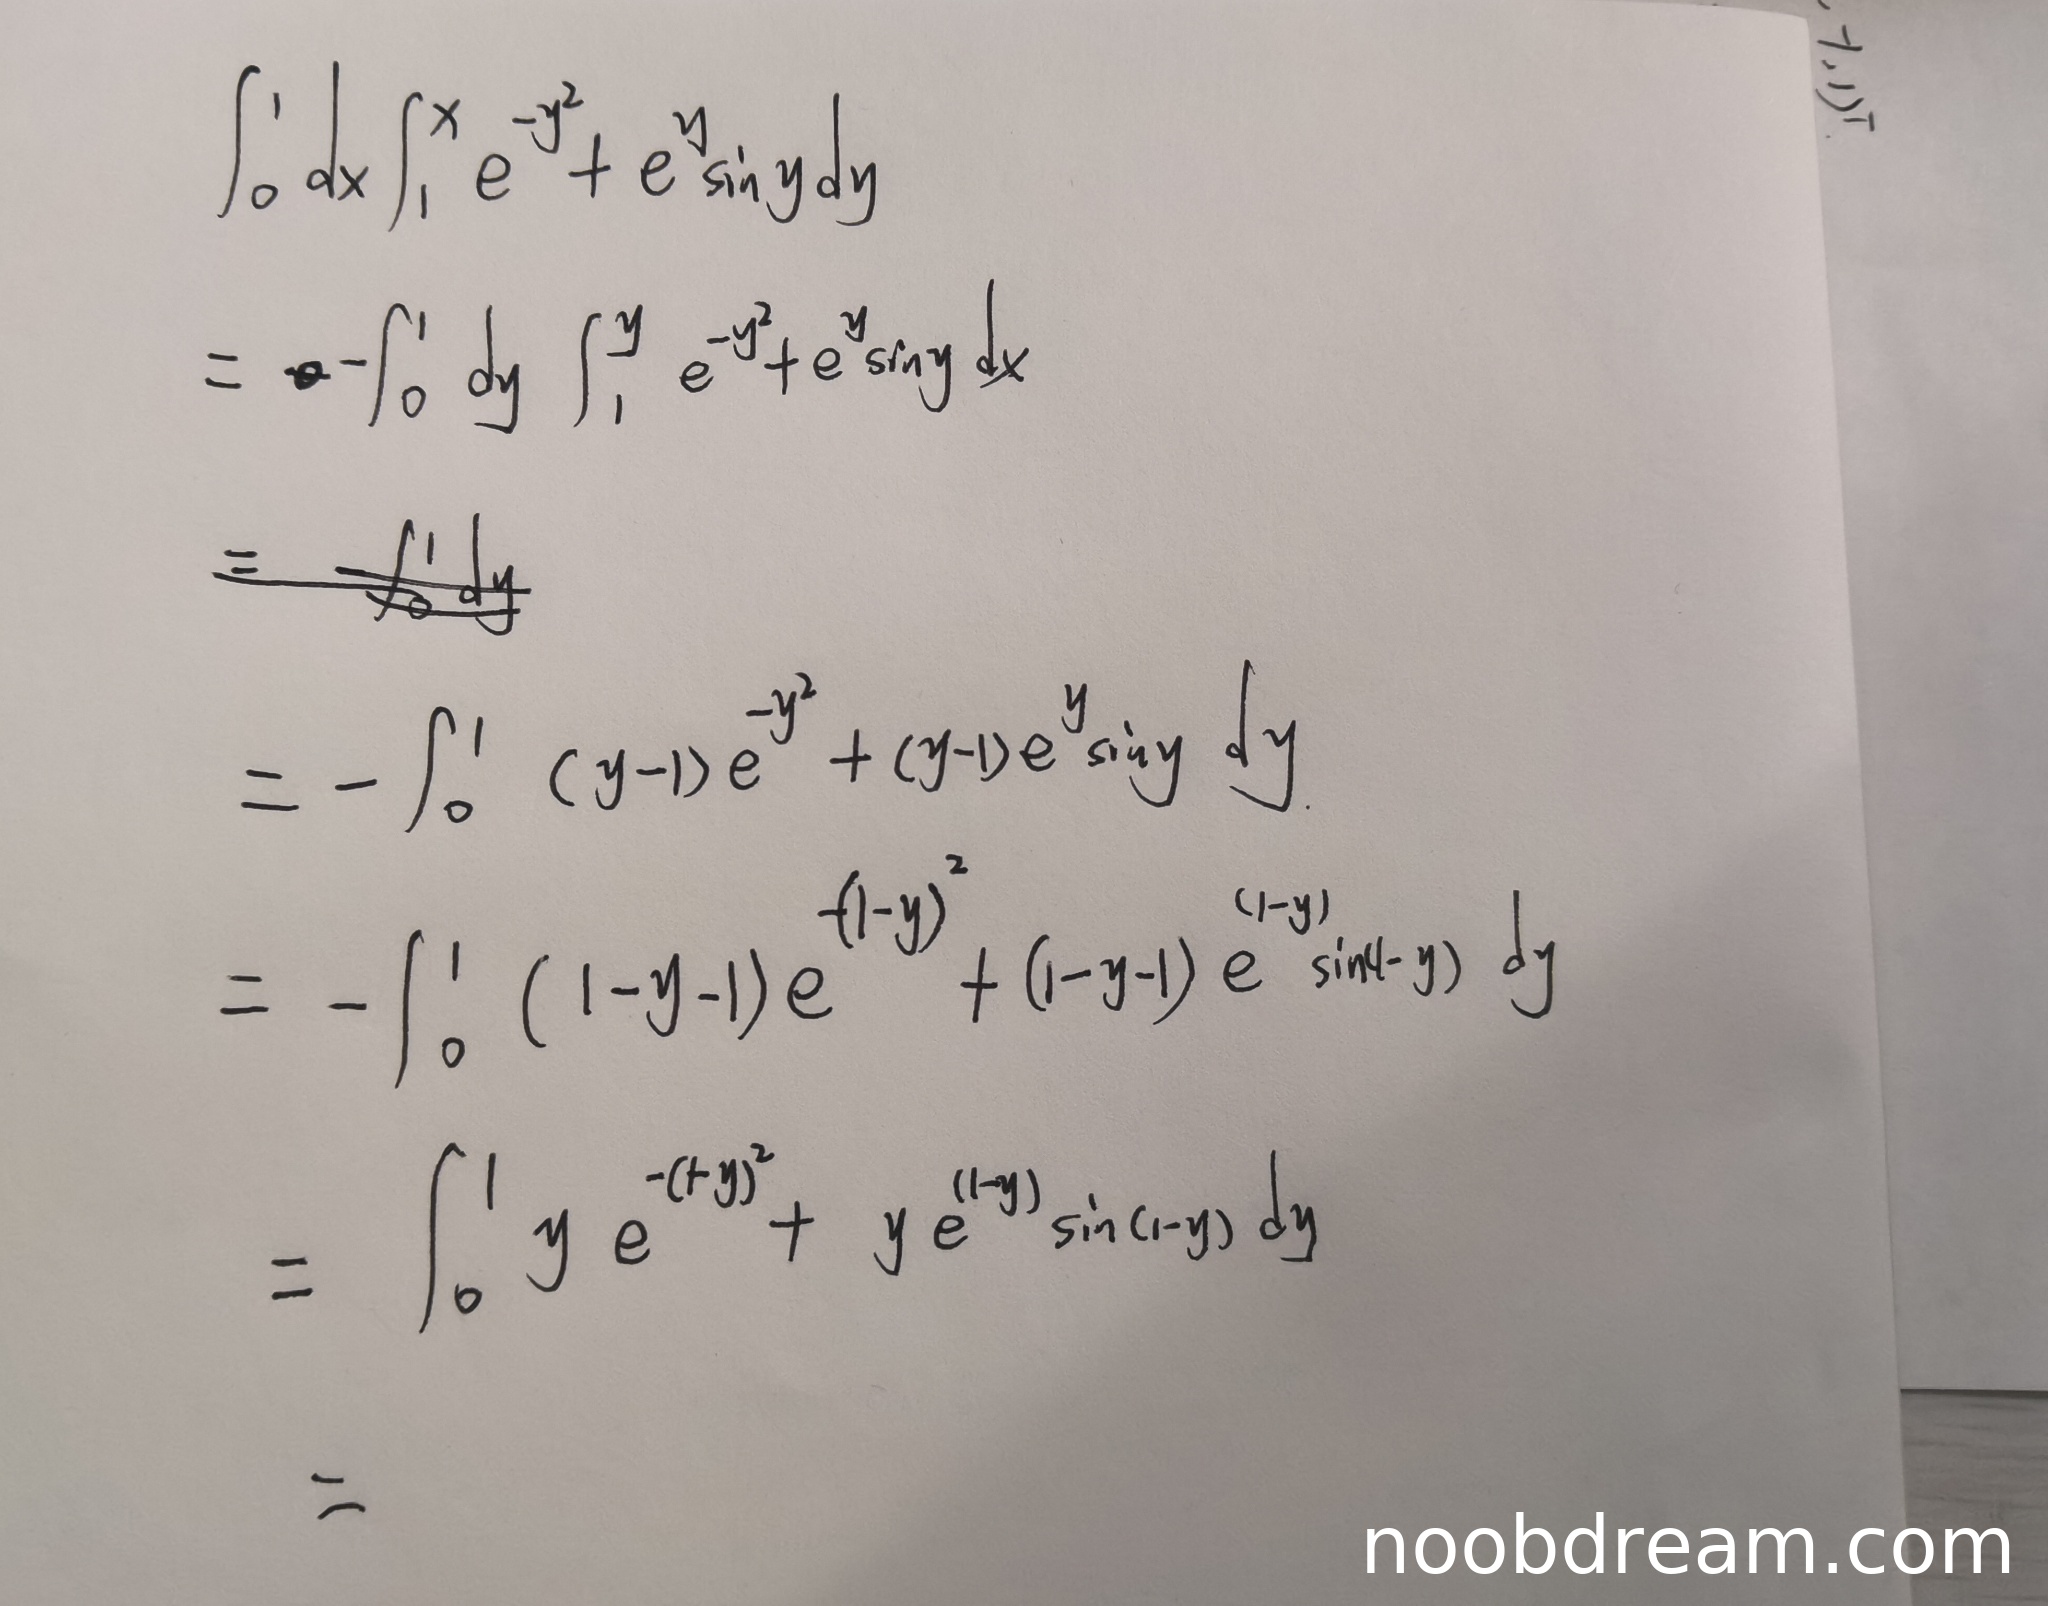 ∫₀¹ dx ∫₁ˣ e^(-y²) + e^y sin y dy
= -∫₀¹ dy ∫₁^y e^(-y²) + e^y sin y dx
= -∫₀¹ dy
= -∫₀¹ (y-1) e^(-y²) + (y-1) e^y sin y dy.
= -∫₀¹ (1-y-1) e^(-(1-y)²) + (1-y-1) e^((1-y)) sin(1-y) dy
= ∫₀¹ y e^(-(1-y)²) + y e^((1-y)) sin(1-y) dy
=
noobdream.com